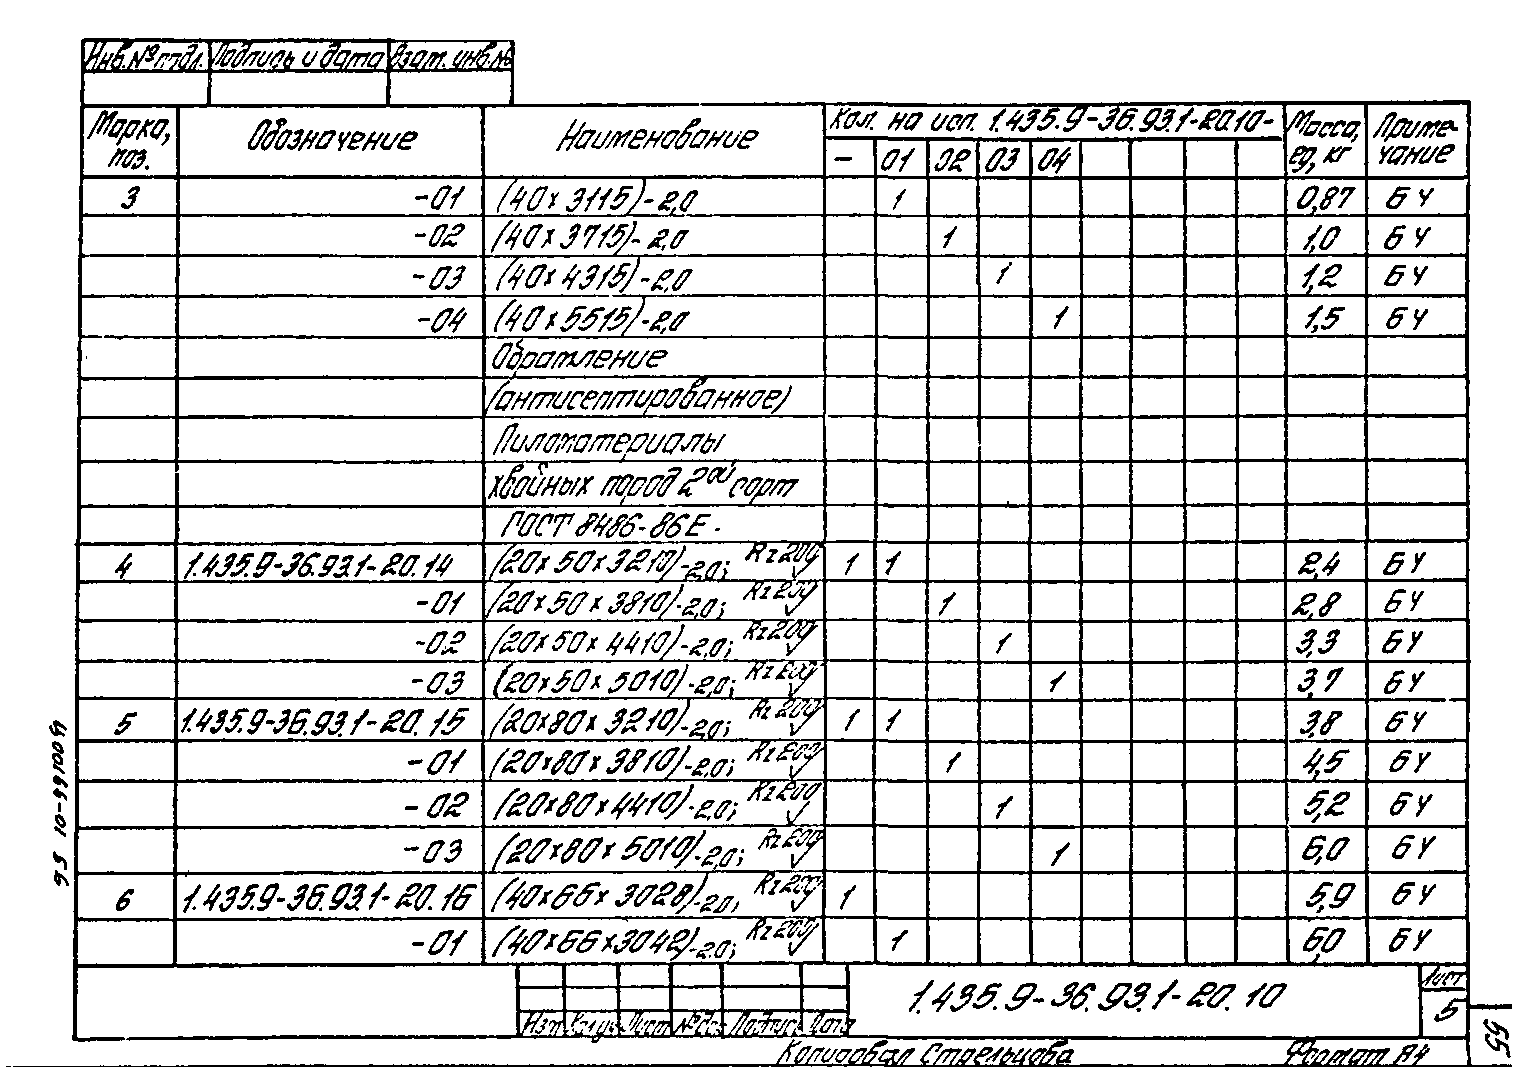 Инв.№ подл. Подпись и дата Взам. инв.№
Марка, поз. Обозначение Наименование Кол. на исп. 1.435.9-36.93.1-20.10- Масса, ед, кг Приме-чание
- 01 02 03 04
3 -01 (40х3115)-2,0 1 0,87 БЧ
-02 (40х3715)-2,0 1 1,0 БЧ
-03 (40х4315)-2,0 1 1,2 БЧ
-04 (40х5515)-2,0 1 1,5 БЧ
Обрамление
(антисептированное)
Пиломатериалы
хвойных пород 2ой сорт
ГОСТ 8486-86Е.
4 1.435.9-36.93.1-20.14 (20х50х3210)-2,0; Rz200 1 1 2,4 БЧ
-01 (20х50х3810)-2,0; Rz200 1 2,8 БЧ
-02 (20х50х4410)-2,0; Rz200 1 3,3 БЧ
-03 (20х50х5010)-2,0; Rz200 1 3,7 БЧ
5 1.435.9-36.93.1-20.15 (20х80х3210)-2,0; Rz200 1 1 3,8 БЧ
-01 (20х80х3810)-2,0; Rz200 1 4,5 БЧ
-02 (20х80х4410)-2,0; Rz200 1 5,2 БЧ
-03 (20х80х5010)-2,0; Rz200 1 6,0 БЧ
6 1.435.9-36.93.1-20.16 (40х66х3028)-2,0; Rz200 1 5,9 БЧ
-01 (40х66х3042)-2,0; Rz200 1 6,0 БЧ
1.435.9-36.93.1-20.10
Лист
5
Изм Кол.уч Лист №док Подпис Дата
Копировал Стрельцова Формат А4
55